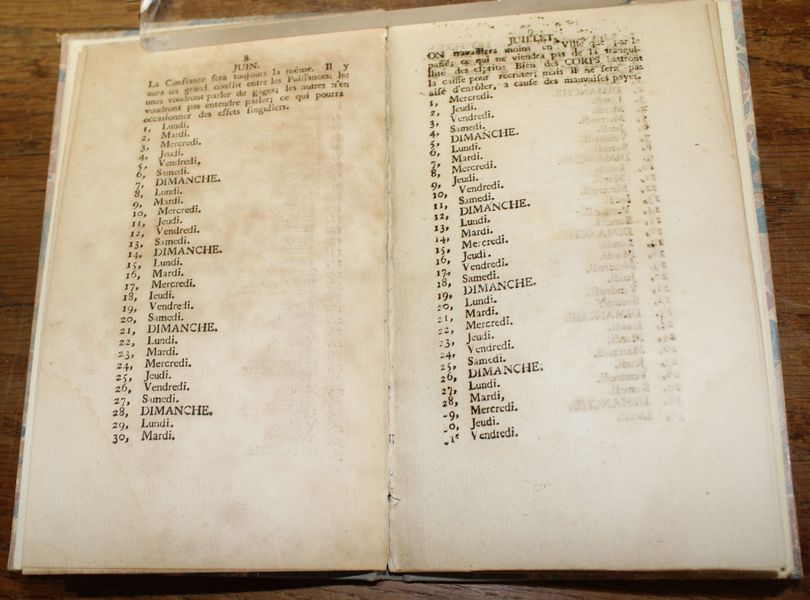 8
JUIN.
La Confiance sera toujours la même. Il y
aura un grand conflit entre les Puissances: les
unes voudront parler de gages; les autres n'en
voudront pas entendre parler; ce qui pourra
occasionner des effets singuliers.
1, Lundi.
2, Mardi.
3, Mercredi.
4, Jeudi.
5, Vendredi,
6, Samedi.
7, DIMANCHE.
8, Lundi.
9, Mardi.
10, Mercredi.
11, Jeudi.
12, Vendredi.
13, Samedi.
14, DIMANCHE.
15, Lundi.
16, Mardi.
17, Mercredi.
18, Jeudi.
19, Vendredi.
20, Samedi.
21, DIMANCHE.
22, Lundi.
23, Mardi.
24, Mercredi.
25, Jeudi.
26, Vendredi.
27, Samedi.
28, DIMANCHE.
29, Lundi.
30, Mardi.
JUILLET.
ON travaillera moins en Ville que par le
passé; ce qui ne viendra pas de la tranquil-
lité des esprits: Bien des CORPS battront
la caisse pour recruter; mais il ne sera pas
aisé d'enrôler, à cause des mauvaises payes.
1, Mercredi.
2, Jeudi.
3, Vendredi.
4, Samedi.
5, DIMANCHE.
6, Lundi.
7, Mardi.
8, Mercredi.
9, Jeudi.
10, Vendredi.
11, Samedi.
12, DIMANCHE.
13, Lundi.
14, Mardi.
15, Mercredi.
16, Jeudi.
17, Vendredi.
18, Samedi.
19, DIMANCHE.
20, Lundi.
21, Mardi.
22, Mercredi.
23, Jeudi.
24, Vendredi.
25, Samedi.
26, DIMANCHE.
27, Lundi.
28, Mardi,
9, Mercredi.
0, Jeudi.
1, Vendredi.